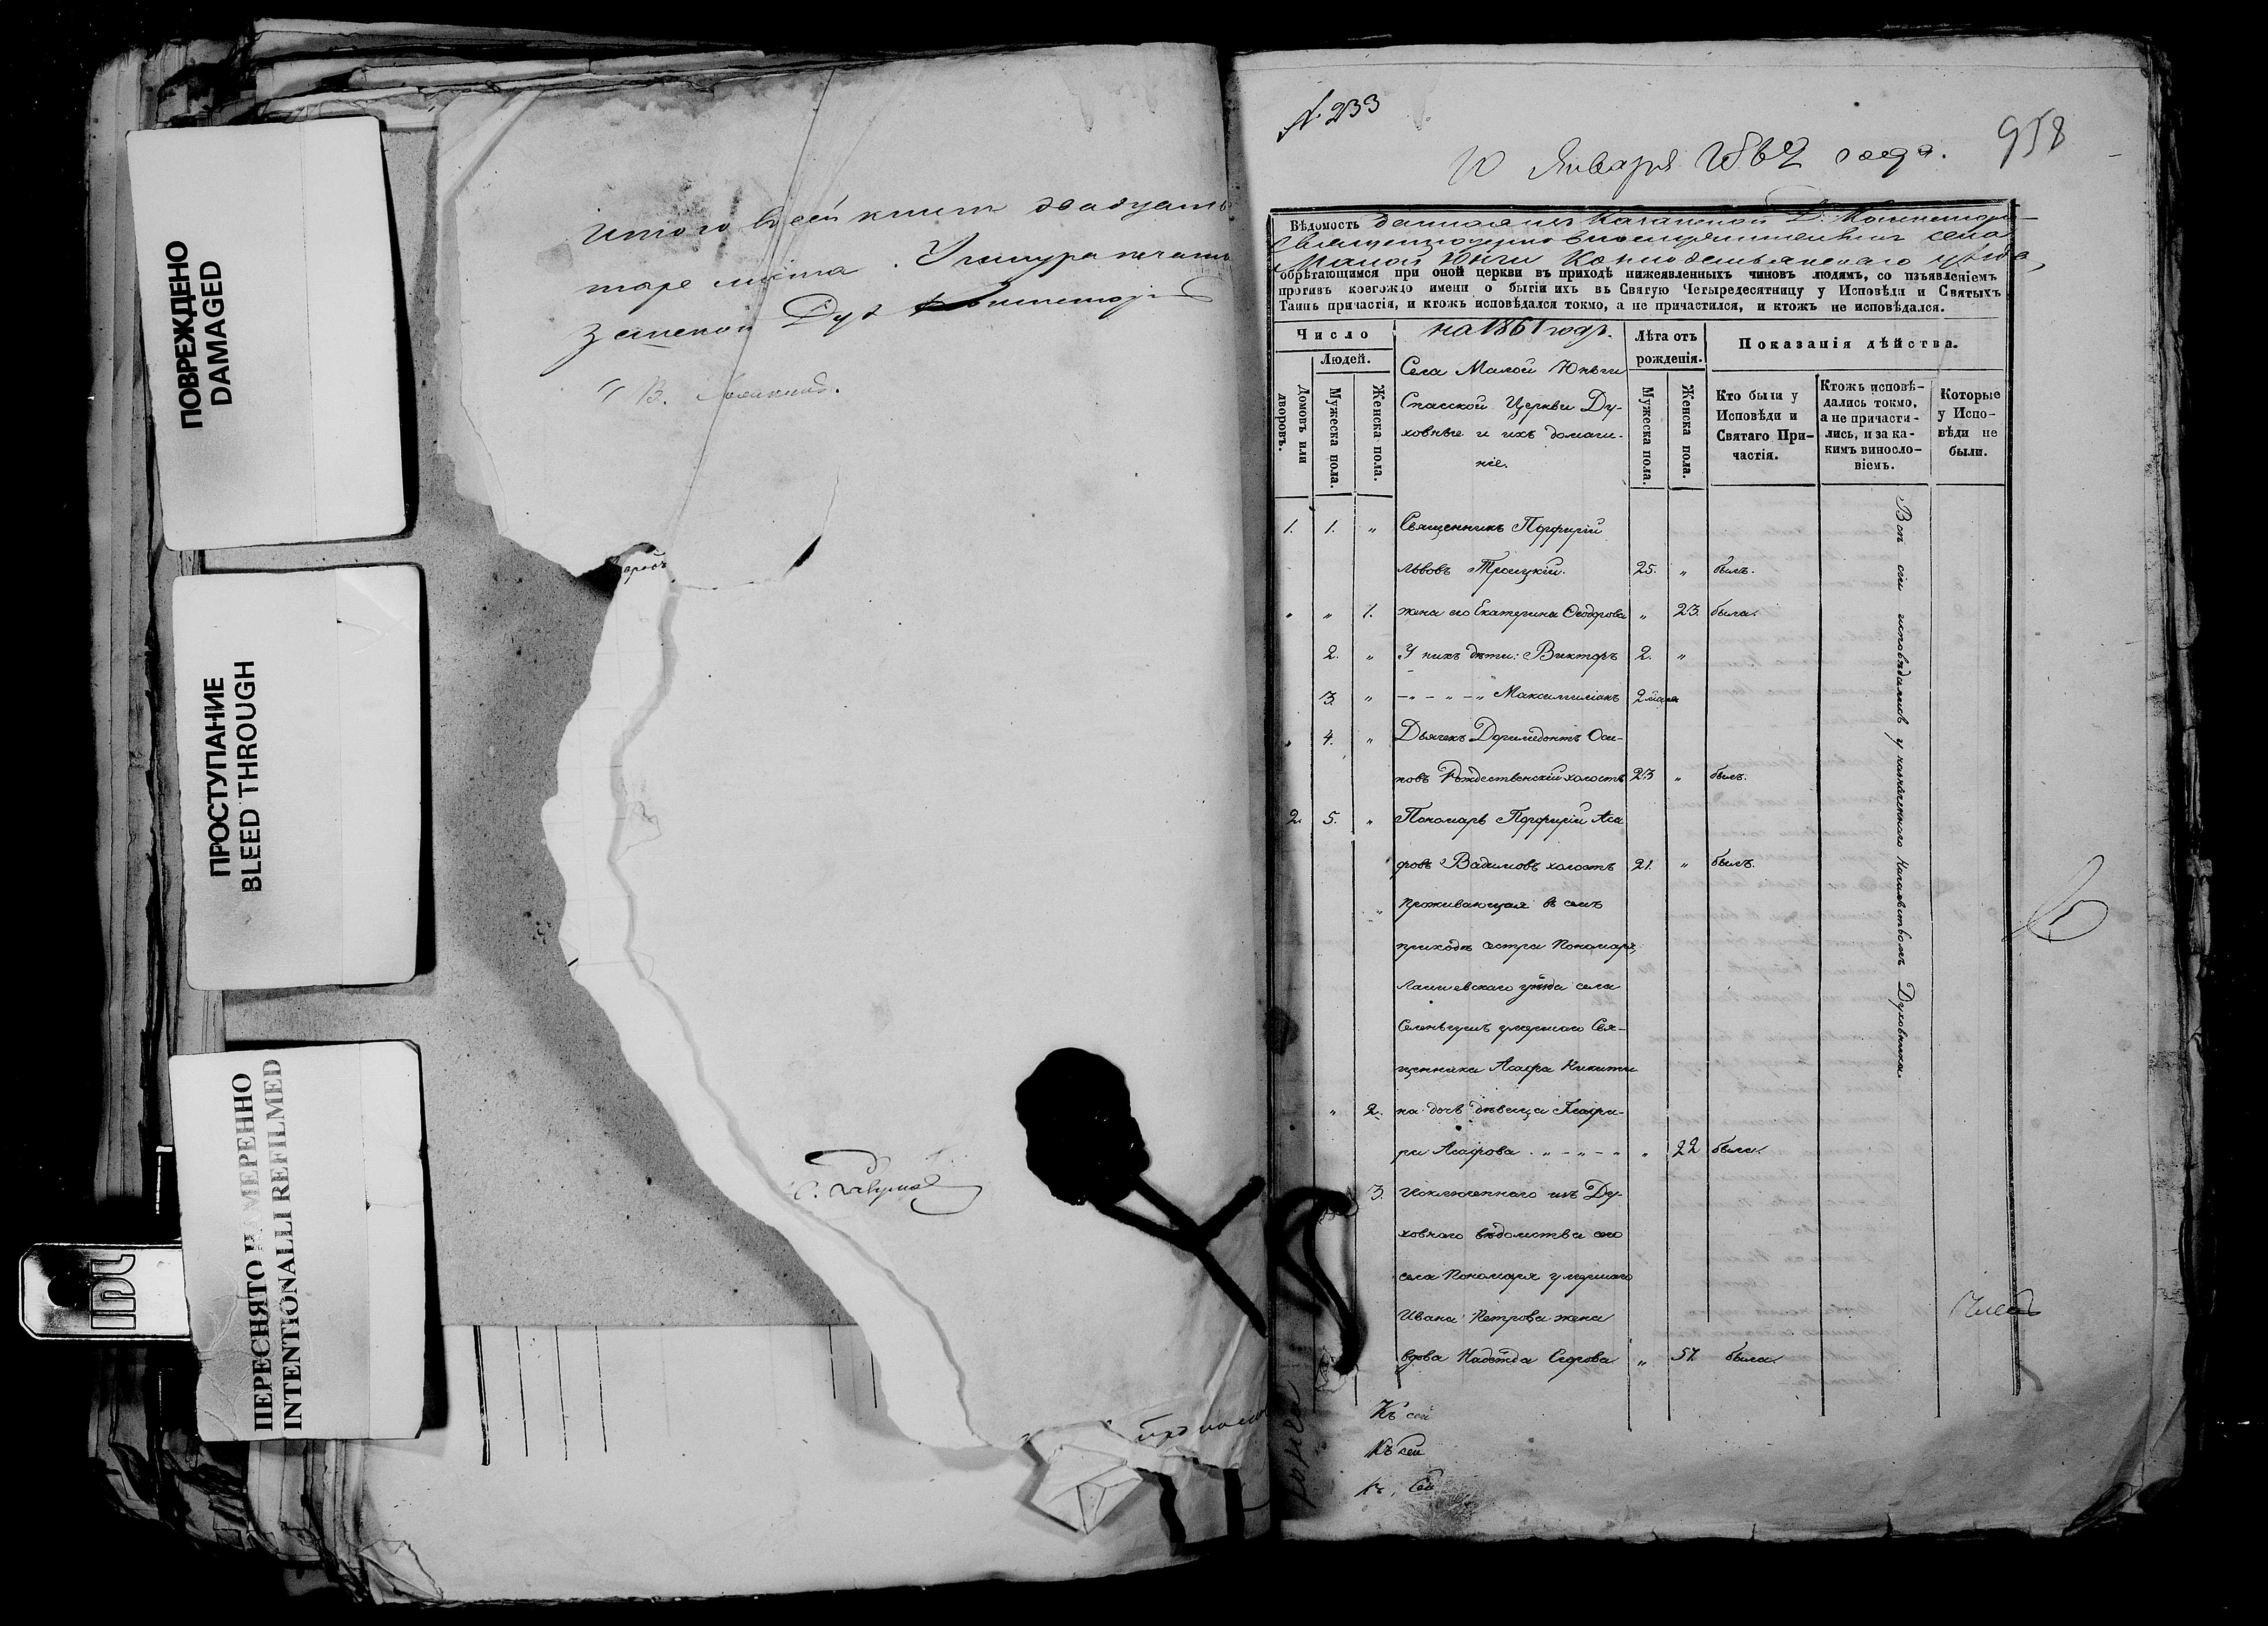 ПОВРЕЖДЕНО
DAMAGED
ПРОСТУПАНИЕ
BLEED THROUGH
ПЕРЕСНЯТО НАМЕРЕННО
INTENTIONALLI REFILMED
Итого в сей книге двадцать
листа
В.
N. 233
958
10 Января 1862 года.
Вѣдомость данная из Казанской Д. Консистории
села
Малой Юнги Козмодемьянскаго уѣзда,
обрѣтающимся при оной церкви въ приходѣ нижеявленныхъ чиновъ людямъ, со изъявленіемъ
противъ коегождо имени о бытіи ихъ въ Святую Четыредесятницу у Исповѣди и Святыхъ
Таинъ причастія, и ктожъ исповѣдался токмо, а не причастился, и ктожъ не исповѣдался.
Число
Людей.
Домовъ или дворовъ.
Мужеска пола.
Женска пола.
на 1861 годъ.
Села Малой Юнги
Спасской Церкви Ду-
ховные и ихъ домаш-
ніе.
Лѣта отъ рожденія.
Мужеска пола.
Женска пола.
Показанія дѣйства.
Кто были у Исповѣди и Святаго Причастія.
Ктожъ исповѣ-дались токмо, а не причасти-лись, и за ка-кимъ винословіемъ.
Которые у Испо-вѣди не были.
1. 1. „ Священникъ Порфирій
Львовъ Троицкій. 25. „ былъ.
„ „ 1. жена его Екатерина Ѳеодорова „ 23. была.
2. „ У нихъ дѣти: Викторъ 2. „
3. „ – „ – „ – „ Максимиліанъ 2 мѣсяца
„ 4. „ Дьячекъ Доримедонтъ Оси-
повъ Рождественскій холостъ 23 „ былъ.
2. 5. „ Пономарь Порфирій Аса
фовъ Вадимовъ холостъ 21. „ былъ.
Проживающая въ семъ
приходѣ сестра Пономаря,
Лаишевскаго уѣзда села
умершаго Свя-
щенника Асафа Никити
„ 2. на дочь дѣвица Глафи-
ра Асафова. „ – „ – „ „ 22 была.
3. Исключеннаго изъ Ду-
ховнаго вѣдомства сего
села Пономаря умершаго
Ивана Петрова жена
вдова Надежда Егорова „ 57. была.
Всѣ сіи исповѣдались у назначеннаго Начальствомъ Духовника.
Къ сей
Къ сей
Къ сей